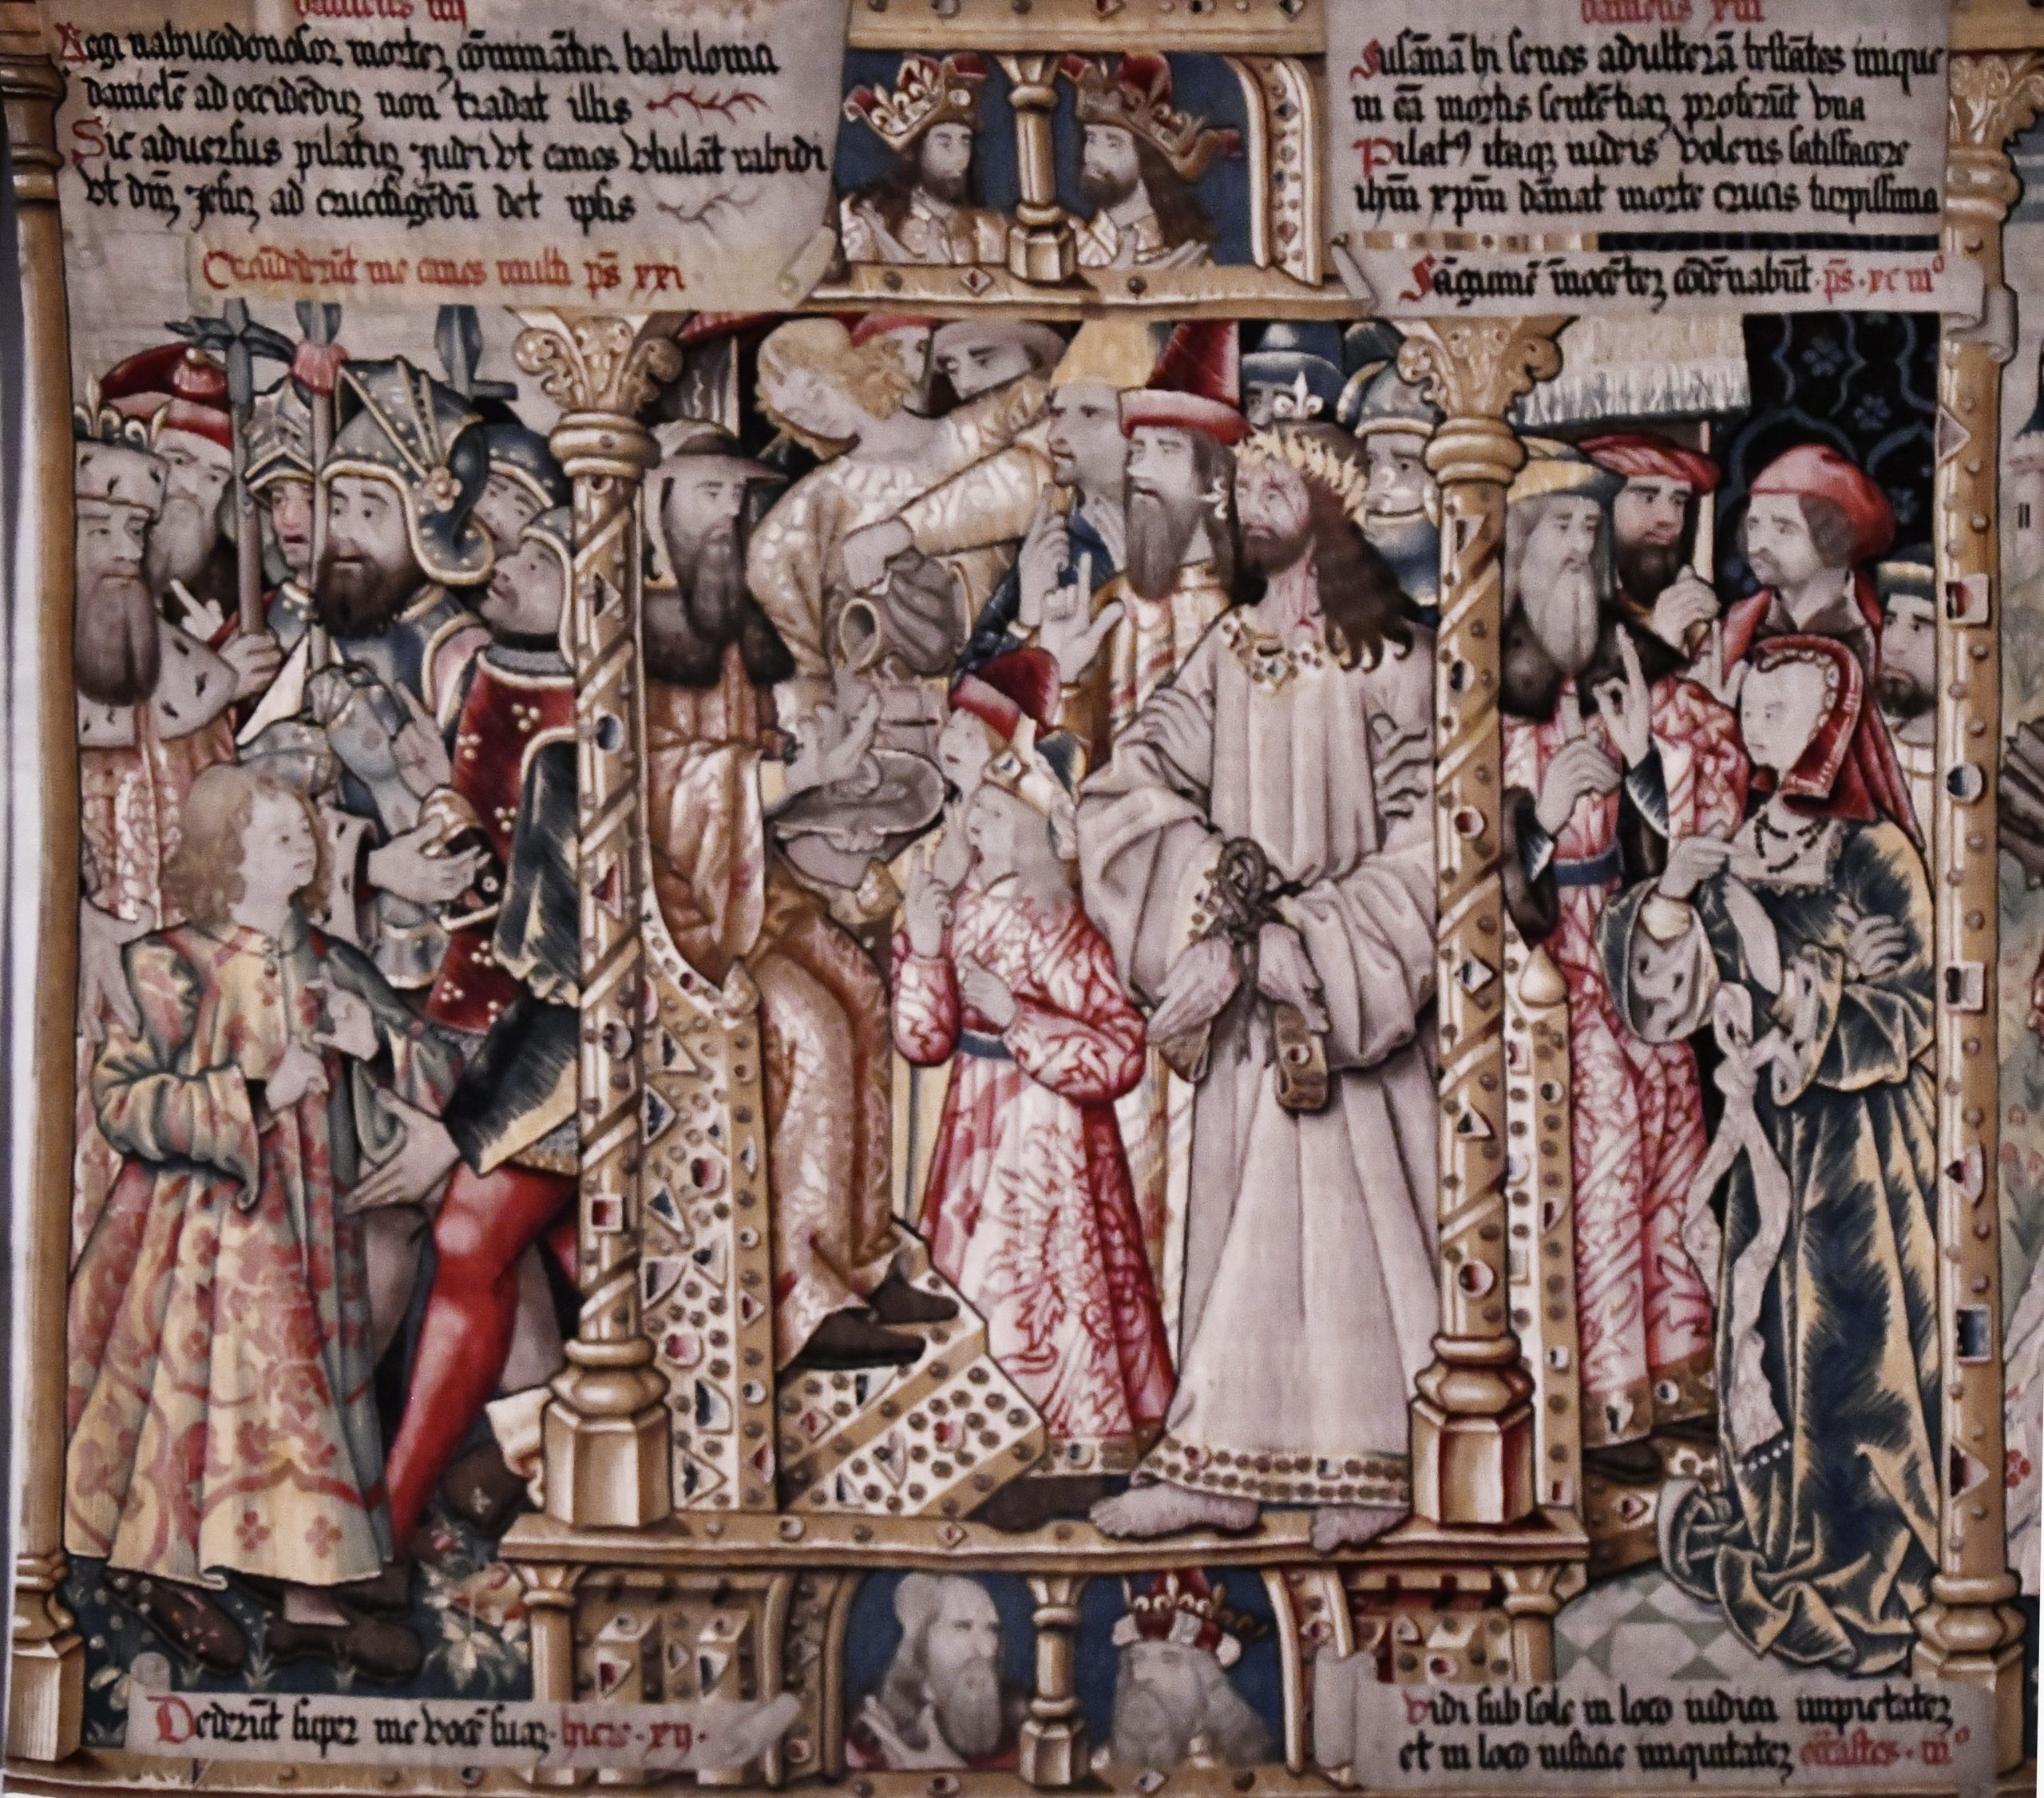 danielis iiij
Regi nabucodonosor mortez cōminātur babilonia
danielē ad occidēduz non tradat illis
Sic adversus pilatuz judei vt canes vlulāt rabidi
vt dnz jesuz ad crucifigēdū det ipsis
Circūdederūt me canes multi ps xxi
danielis xiii
Susānā hi senes adulterā testātes inique
in eā mortis sentētiaz proferūt vna
Pilatꝰ itaqz iudeis volens satisfacere
ihm xpm dānat morte crucis turpissima
Sāguinē inocētez cōdēnabūt ps · xc iiiº
Dederūt super me vocē suaz · hiere · xij ·
Vidi sub sole in loco iudicii impietatez
et in loco iusticie iniquitatez ecclastes · iiiº